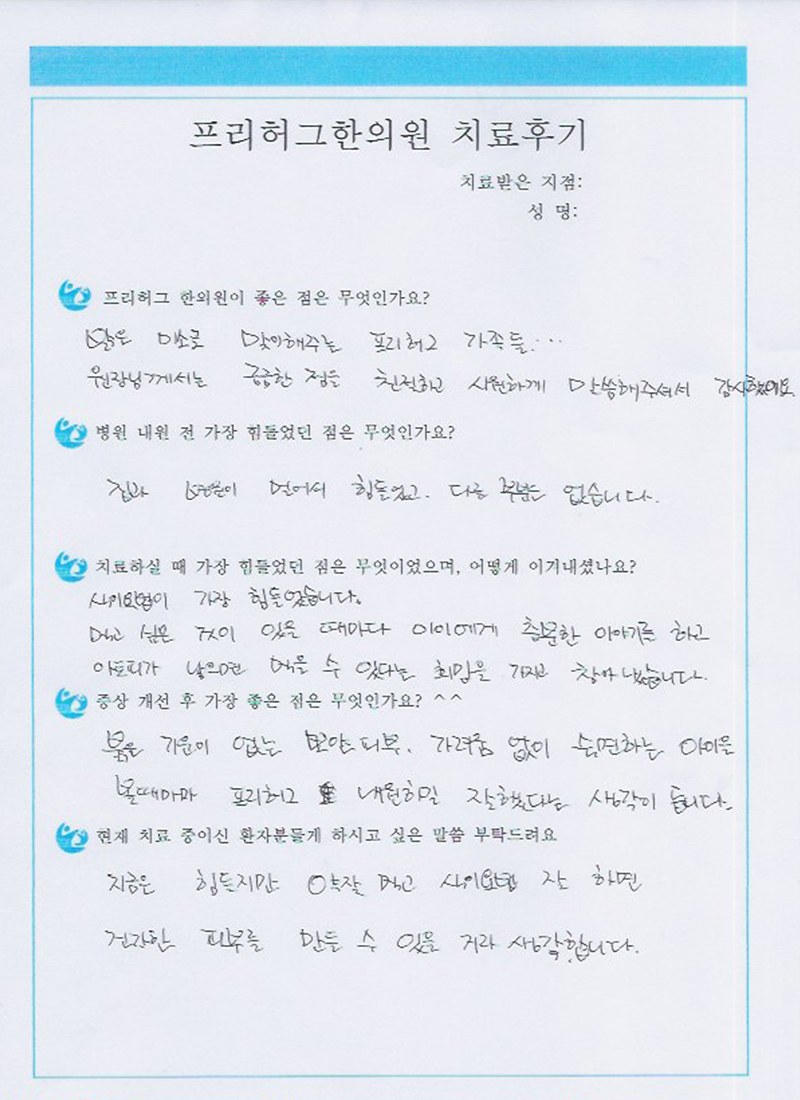 프리허그한의원 치료후기
치료받은 지점:
성 명:
프리허그 한의원이 좋은 점은 무엇인가요?
밝은 미소로 맞이해주는 프리허그 가족들...
원장님께서는 궁금한 점을 친절하고 시원하게 말씀해주셔서 감사했어요
병원 내원 전 가장 힘들었던 점은 무엇인가요?
집과 병원이 멀어서 힘들었고. 다른 부분은 없습니다.
치료하실 때 가장 힘들었던 점은 무엇이었으며, 어떻게 이기내셨나요?
식이요법이 가장 힘들었습니다.
먹고 싶은 것이 있을 때마다 아이에게 충분한 이야기를 하고
아토피가 낳으면 먹을 수 있다는 희망을 가지고 참아냈습니다.
증상 개선 후 가장 좋은 점은 무엇인가요? ^^
붉은 기운이 없는 뽀얀피부. 가려움 없이 숙면하는 아이을
볼때마다 프리허그 내원하길 잘했다는 생각이 듭니다.
현재 치료 중이신 환자분들게 하시고 싶은 말씀 부탁드려요
지금은 힘들지만 약잘 먹고 식이요법 잘 하면
건강한 피부를 만들 수 있을 거라 생각합니다.